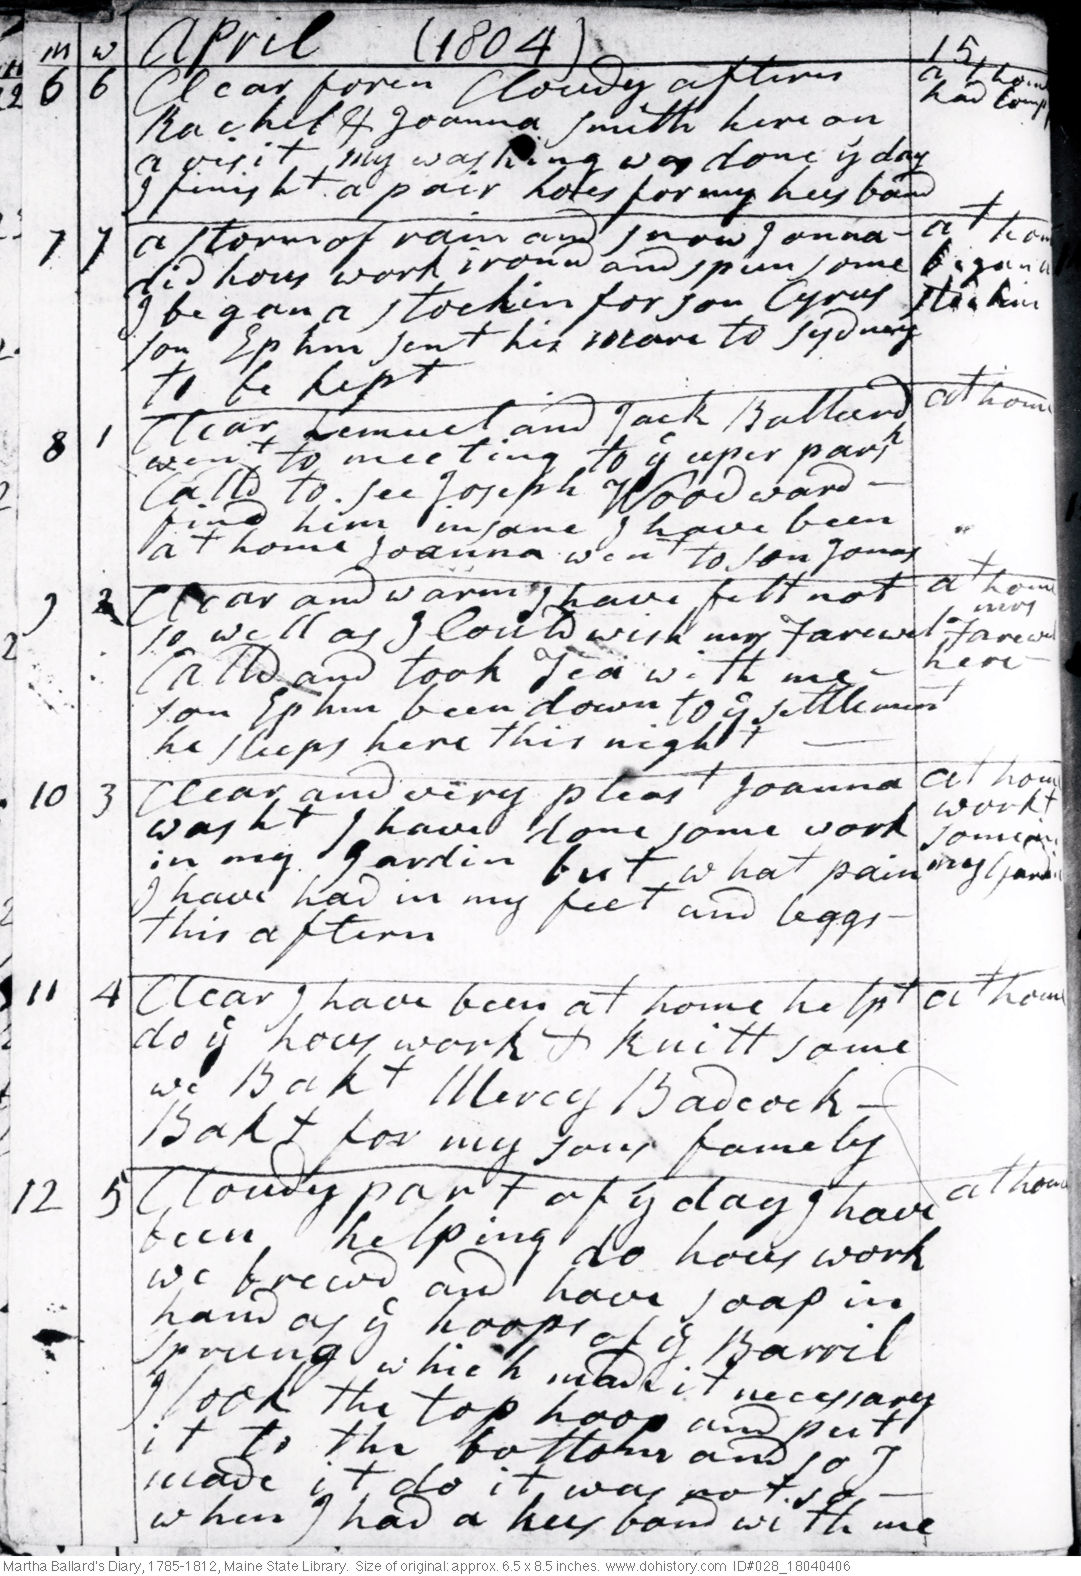 m w April (1804) 15
6 6 Clear foren Cloudy aftern at home
Rachel & Joanna Smith here on had Comp
a visit my washing was done ÿ day
I finisht a pair hoes for my husband
7 7 a storm of rain and snow Joana- at home
did hous work round and spun some began a
I began a stockin for son Cyrus stockin
son Ephm sent his mare to Sydney
to be kept
8 1 Clear Lemuel and Jack Ballard at home
went to meeting to ÿ uper parsh
Calld to see Joseph Woodward -
find him insane I have been
at home Joanna went to son Jonas "
9 2 Clear and warm I have felt not at home
so well as I Could wish mrs Farewel mrs Farewel
Calld and took Tea with me - here -
son Ephm been down to ÿ settlement
he sleeps here this night -
10 3 Clear and very pleast Joanna at home
washt I have done some work workt
in my gardin but what pain some in my Gardin
I have had in my feet and leggs -
this aftern
11 4 Clear I have been at home helpt at home
do ÿ hous work & knitt some
we Bakt Mercy Badcock -
Bakt for my sons famely
12 5 Cloudy part of ÿ day I have at home
been helping do hous work
we brewd and have soap in
hand as ÿ hoops of ÿ Barril
sprung which made it necessary
I took the top hoop and put
it to the bottom and so I
made it do it was not so -
when I had a husband with me
Martha Ballard's Diary, 1785-1812, Maine State Library. Size of original: approx. 6.5 x 8.5 inches. www.dohistory.com ID#028_18040406